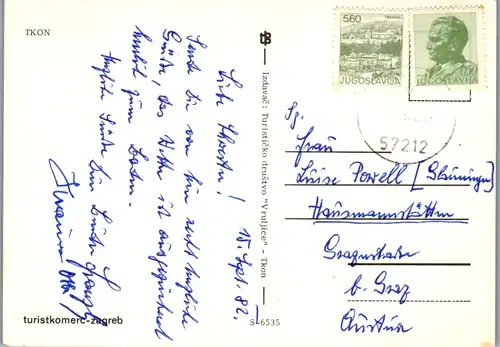 TKON
Liebe Schwester!
15. Sept. 82.
Sende Dir von hier recht herzliche
Grüße, das Wetter ist ausgezeichnet
zum Baden.
Herzliche Grüße Dein Bruder
Izdavač: Turističko društvo "Vruljice" - Tkon
S-6535
turistkomerc-zagreb
5.60
JUGOSLAVIJA
JUGOSLAVIJA
57212
Frau
Luise Powell
Hausmannstätten
b. Graz
Austria